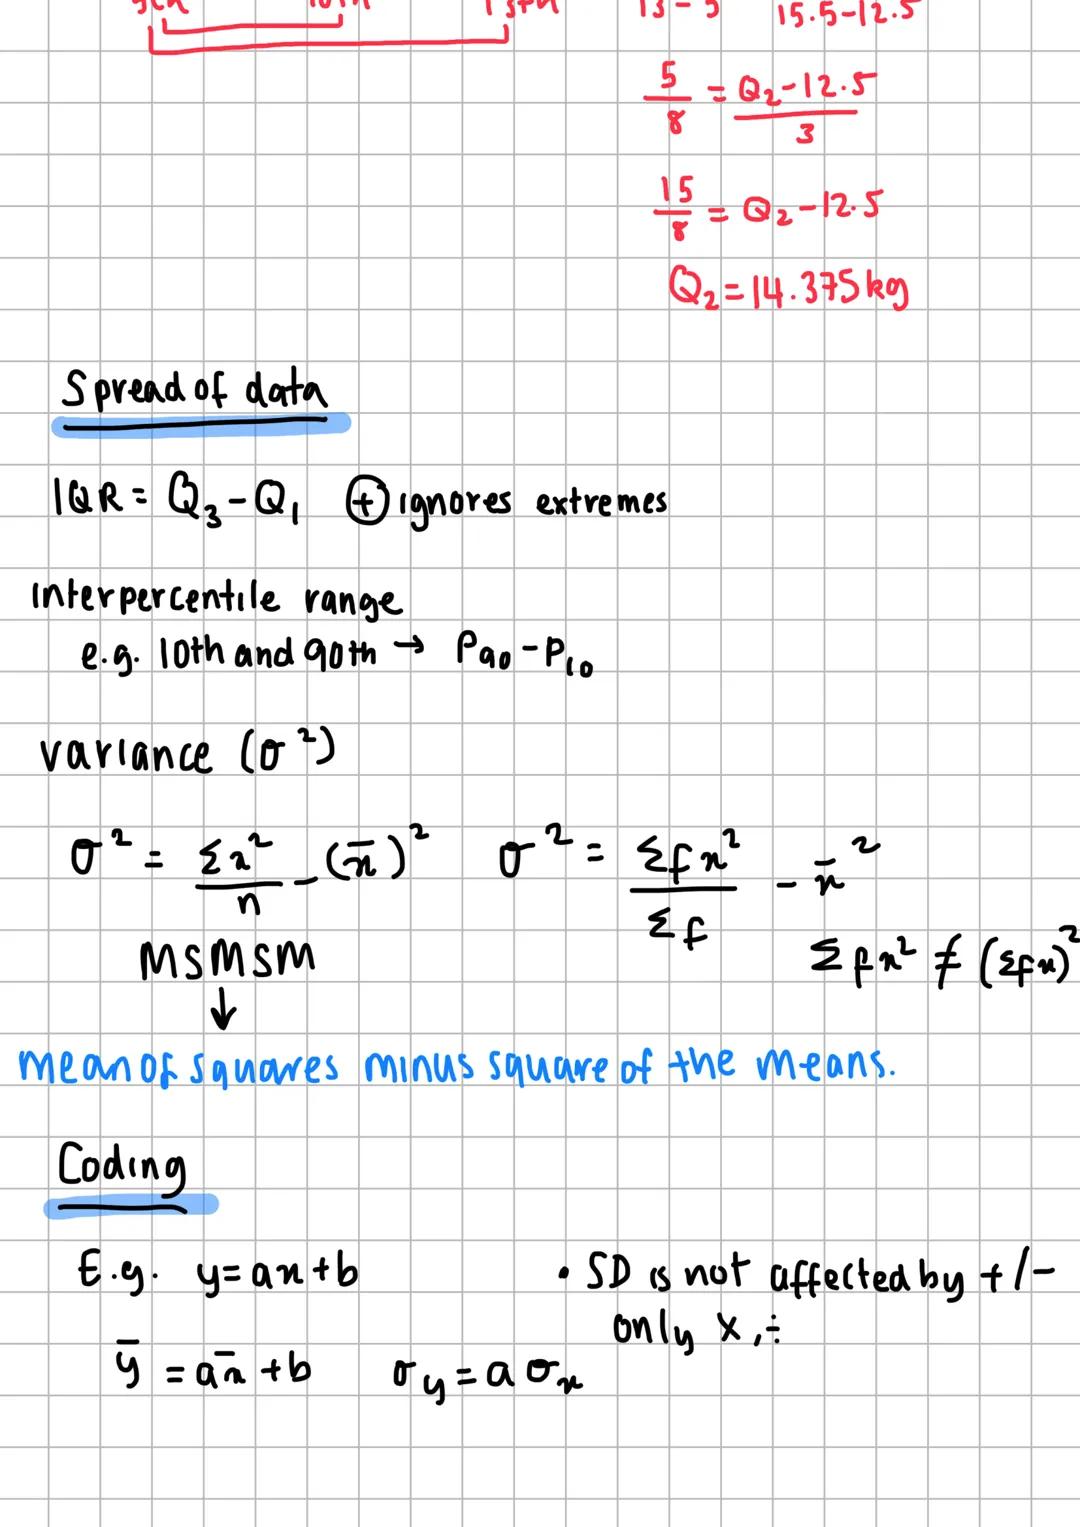 13-5 15.5-12.5
5/8 = Q₂-12.5/3
15/8 = Q₂-12.5
Q₂=14.375kg
Spread of data
IQR = Q₃-Q₁ ⊕ ignores extremes
interpercentile range
e.g. 10th and 90th → P₉₀-P₁₀
variance (σ²)
σ² = Σx²/n - (x̄)² σ² = Σfx²/Σf - x̄²
MSMSM Σfx² ≠ (Σfx)²
↓
mean of squares minus square of the means.
Coding
E.g. y=ax+b • SD is not affected by +/-
only ×,÷
ȳ = ax̄+b σy = aσx